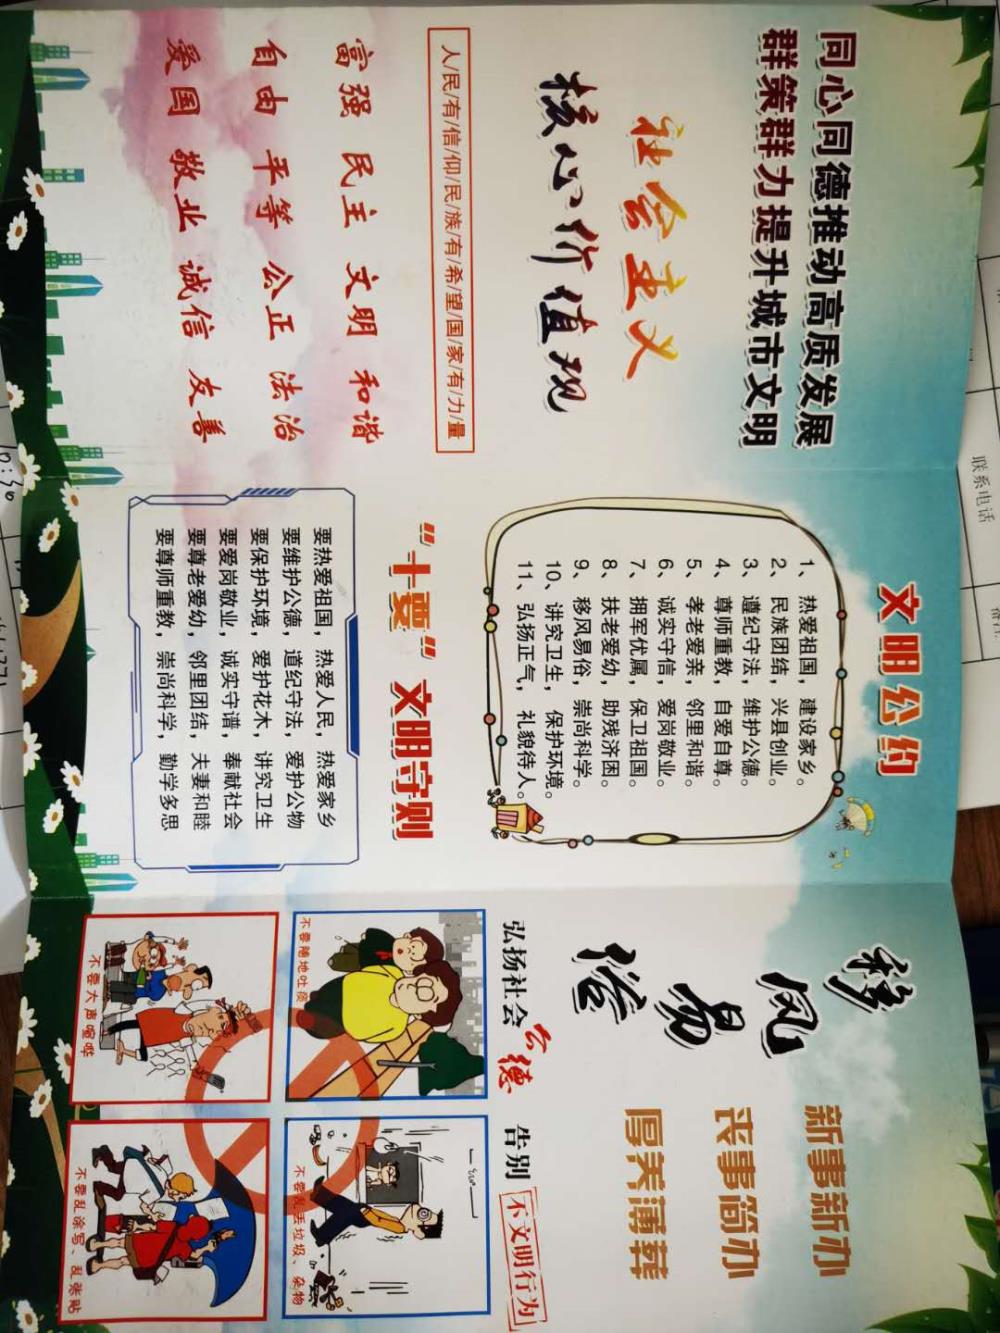 同心同德推动高质发展
群策群力提升城市文明
社会主义
核心价值观
人/民/有/信/仰/民/族/有/希/望/国/家/有/力/量
富强 民主 文明 和谐
自由 平等 公正 法治
爱国 敬业 诚信 友善
文明公约
1、热爱祖国，建设家乡。
2、民族团结，兴县创业。
3、遵纪守法，维护公德。
4、尊师重教，自爱自尊。
5、孝老爱亲，邻里和谐。
6、诚实守信，爱岗敬业。
7、拥军优属，保卫祖国。
8、扶老爱幼，助残济困。
9、移风易俗，崇尚科学。
10、讲究卫生，保护环境。
11、弘扬正气，礼貌待人。
“十要”文明守则
要热爱祖国，热爱人民，热爱家乡
要维护公德，遵纪守法，爱护公物
要保护环境，爱护花木，讲究卫生
要爱岗敬业，诚实守谱，奉献社会
要尊老爱幼，邻里团结，夫妻和睦
要尊师重教，崇尚科学，勤学多思
移风易俗
新事新办
丧事简办
厚养薄葬
弘扬社会公德 告别不文明行为
不要随地吐痰
不要乱丢垃圾、杂物
不要大声喧哗
不要乱涂写、乱张贴
联系电话
10:30